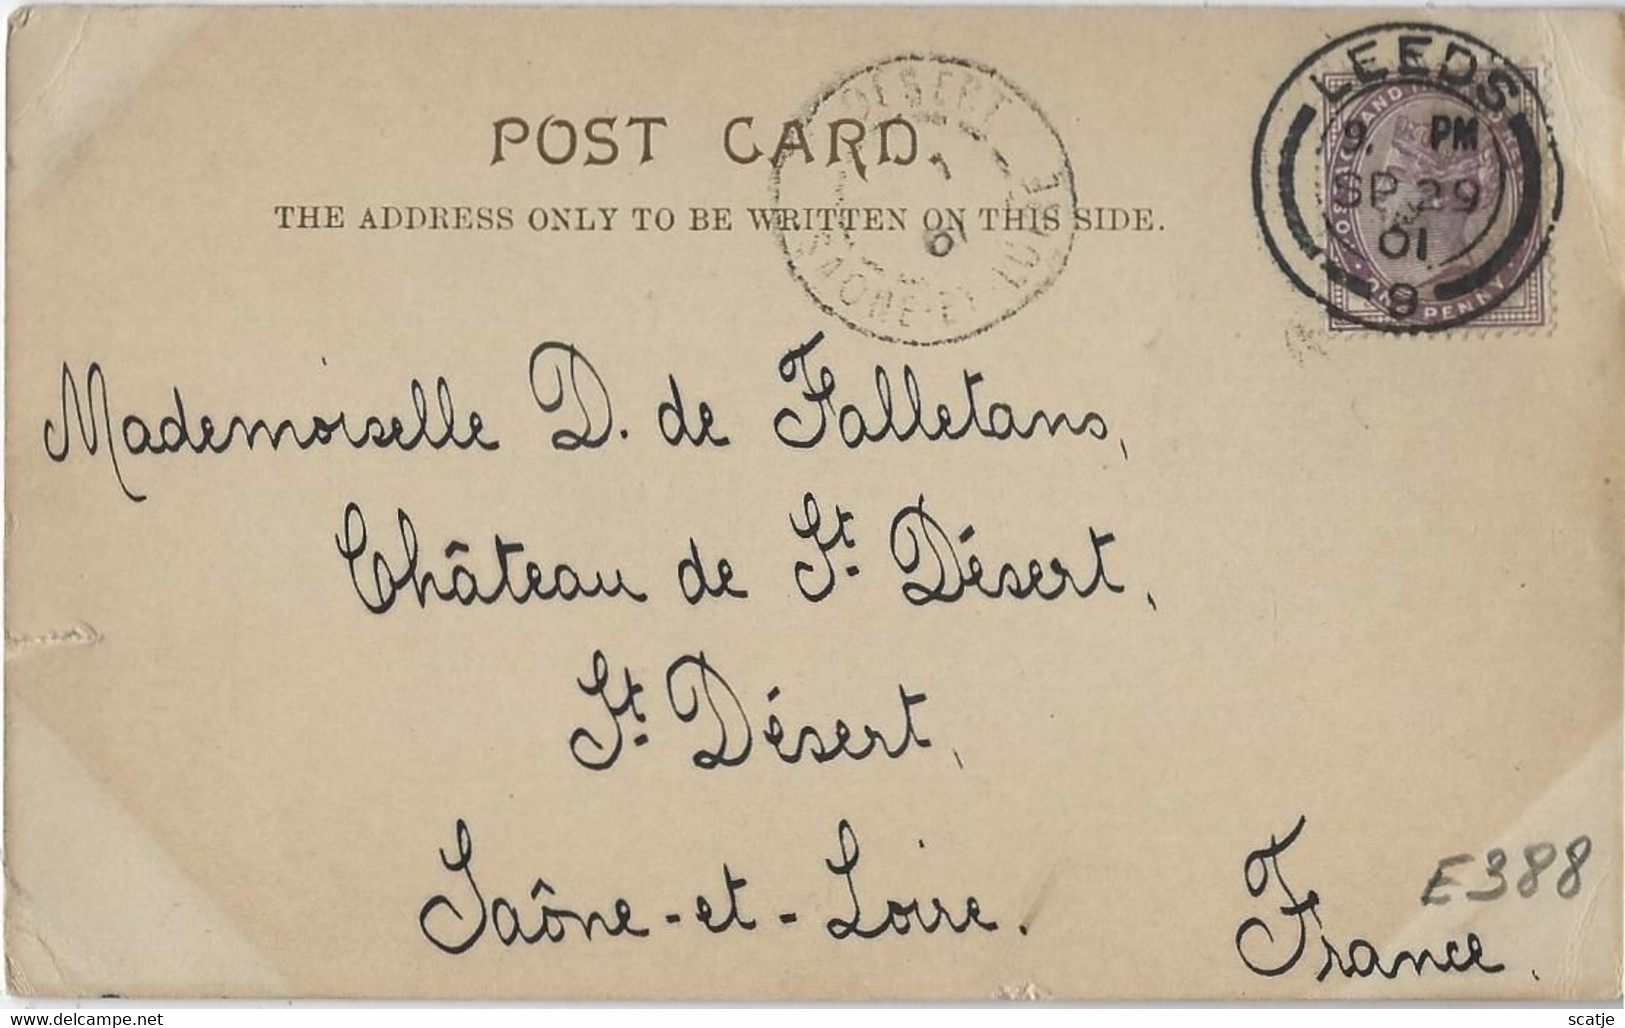 POST CARD.
THE ADDRESS ONLY TO BE WRITTEN ON THIS SIDE.
LEEDS
9. PM
SP 29
01
9
ONE PENNY
DÉSERT
SAONE-ET-LOIRE
Mademoiselle D. de Falletans,
Château de St. Désert,
St. Désert,
Saône-et-Loire.
France.
E388
© scatje @ delcampe.net